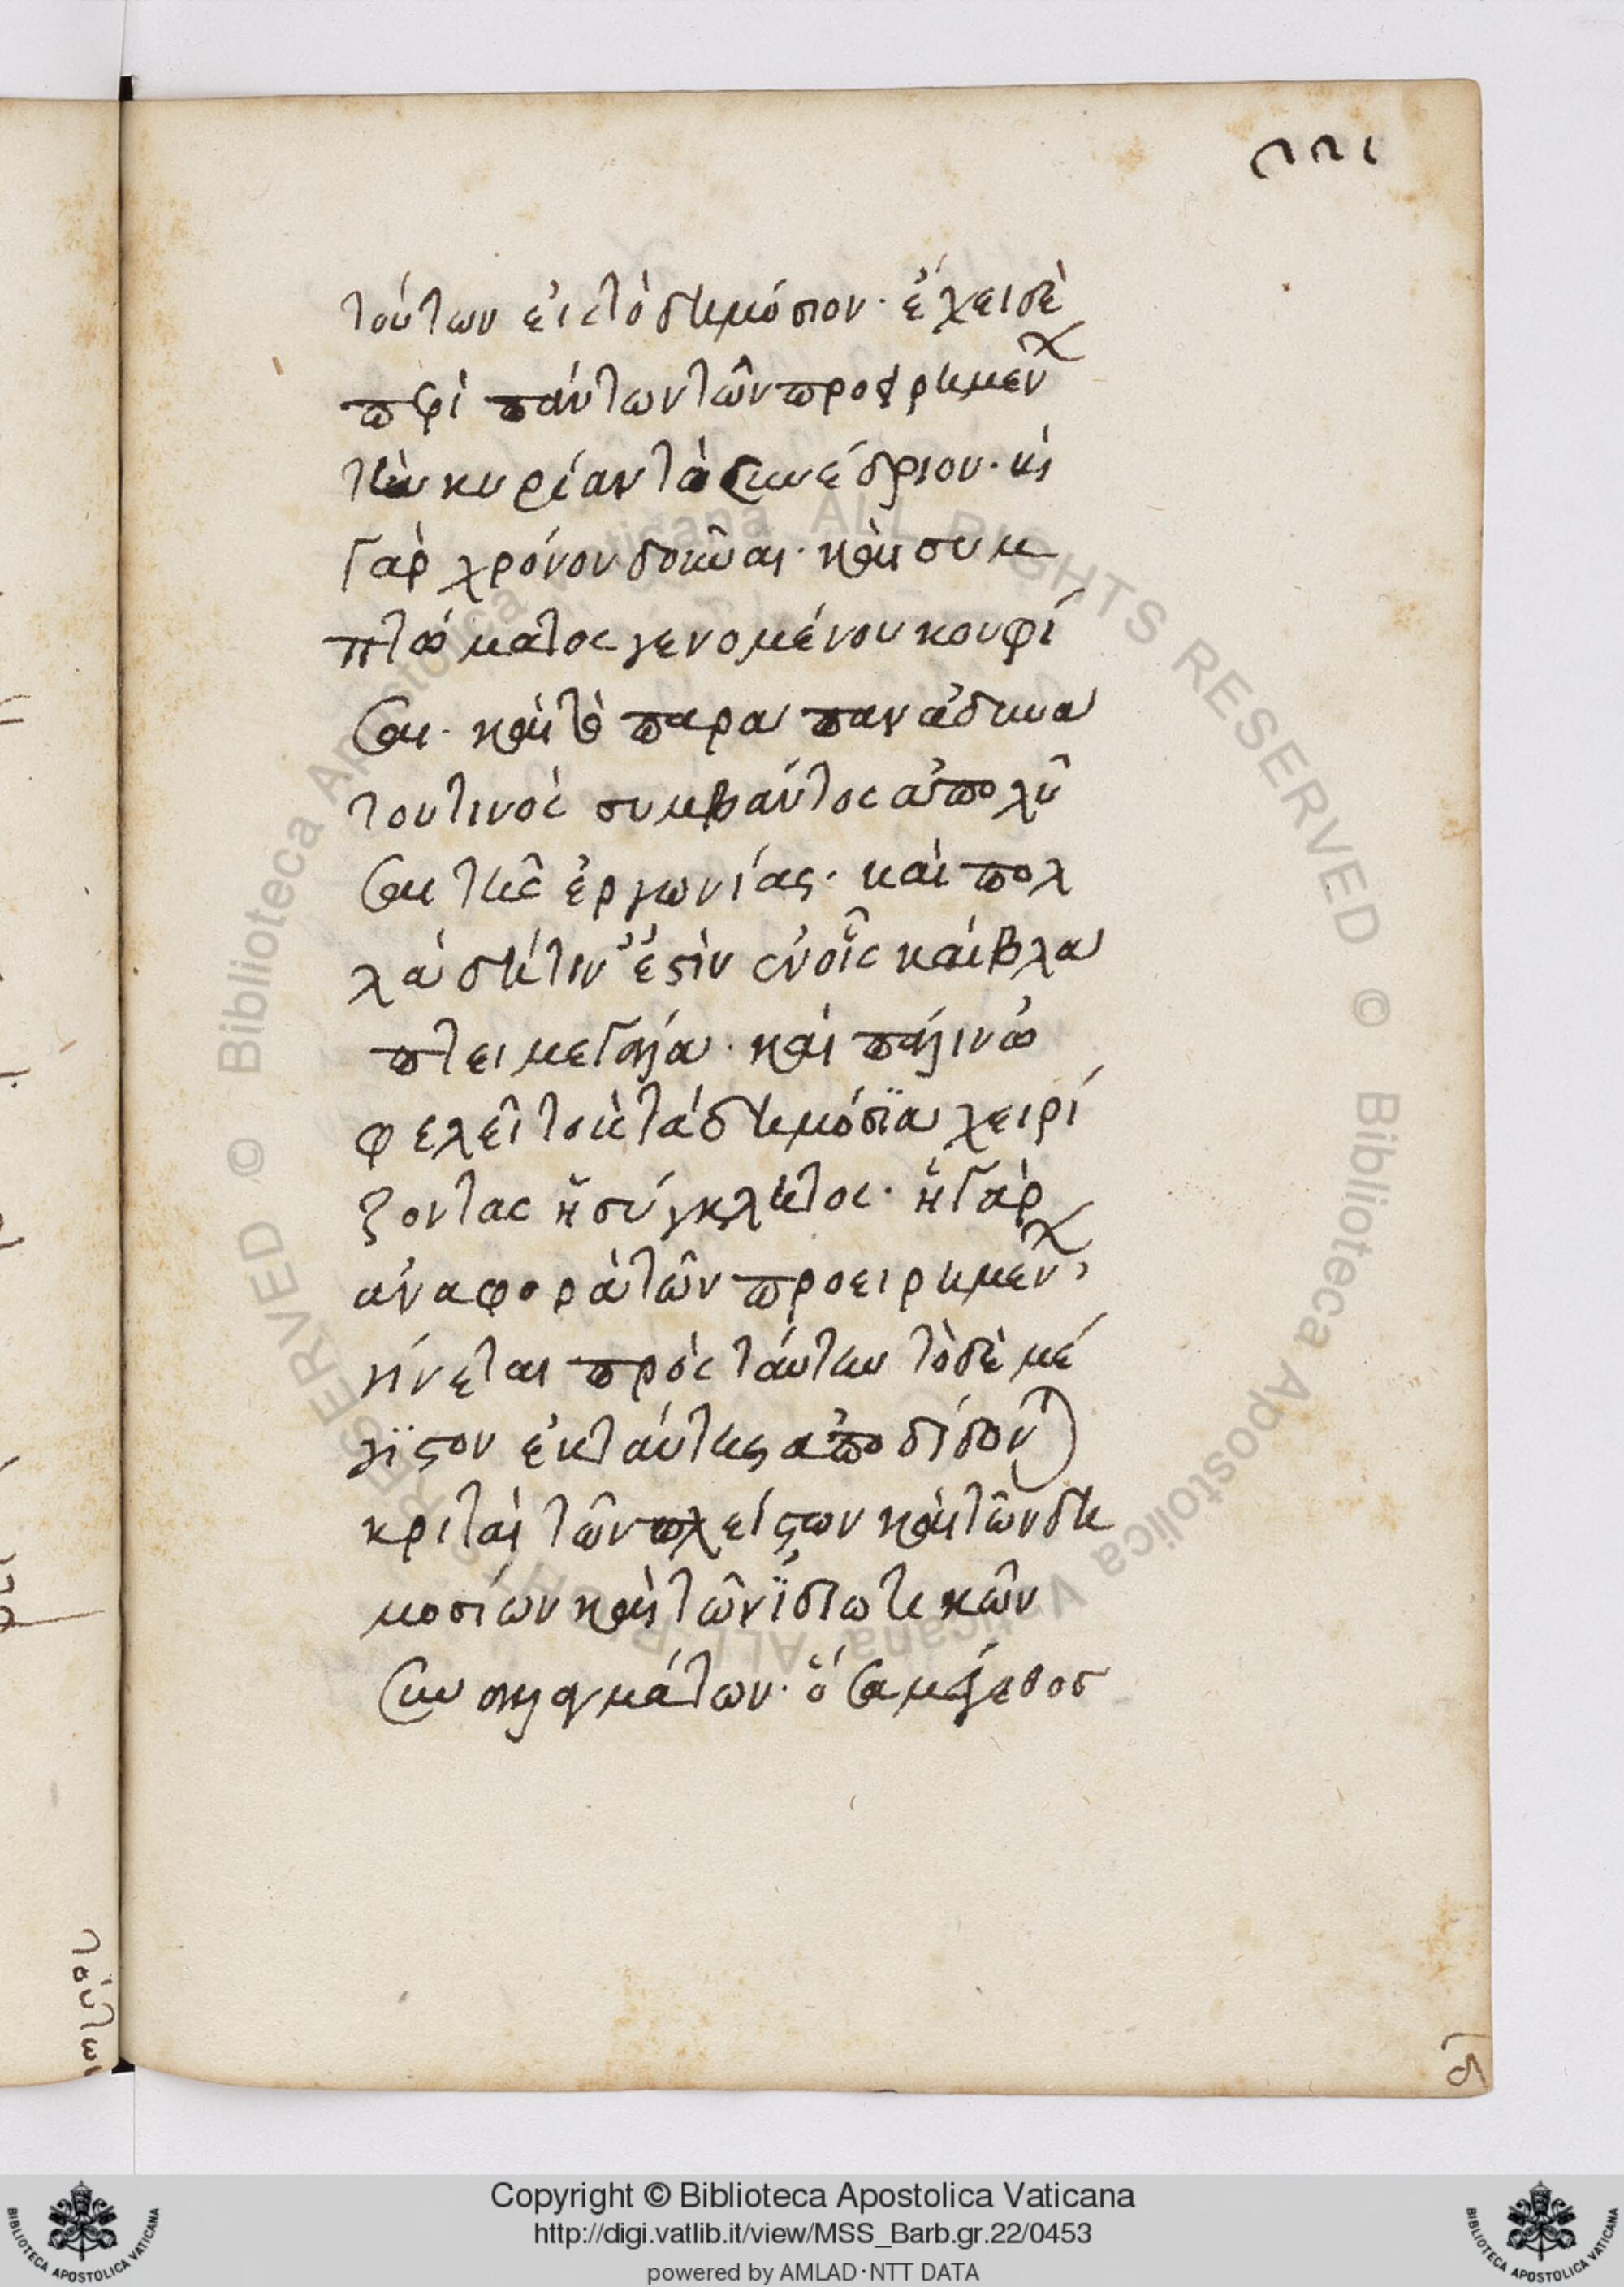 221
τούτων εἰς τὸ δημόσιον· ἔχει δὲ
περὶ πάντων τῶν προειρημένων
τὴν κυρίαν τὸ συνέδριον· καὶ
γὰρ χρόνον δοῦναι· καὶ συμ
πτώματος γενομένου κουφί
σαι· καὶ τὸ παρα παν ἀδυνα
του τινὸς συμβάντος ἀπολῦ
σαι τῆς ἐργωνίας· καὶ πολ
λὰ δή τιν' ἐστὶν ἐν οἷς καὶ βλα
πτει μεγάλα· καὶ πάλιν ὠ
φελεῖ τοὺς τὰ δημόσϊα χειρί
ζοντας ἡ σύγκλητος· ἡ γὰρ
ἀναφορὰ τῶν προειρημένων
γίνεται πρὸς ταύτην τὸ δὲ μέ
γϊστον ἐκ ταύτης ἀποδίδονται
κριταὶ τῶν πλείστων καὶ τῶν δη
μοσίων καὶ τῶν ϊδιωτικῶν
συναλλαγμάτων· ὅσα μέγεθος
Copyright © Biblioteca Apostolica Vaticana
http://digi.vatlib.it/view/MSS_Barb.gr.22/0453
powered by AMLAD·NTT DATA